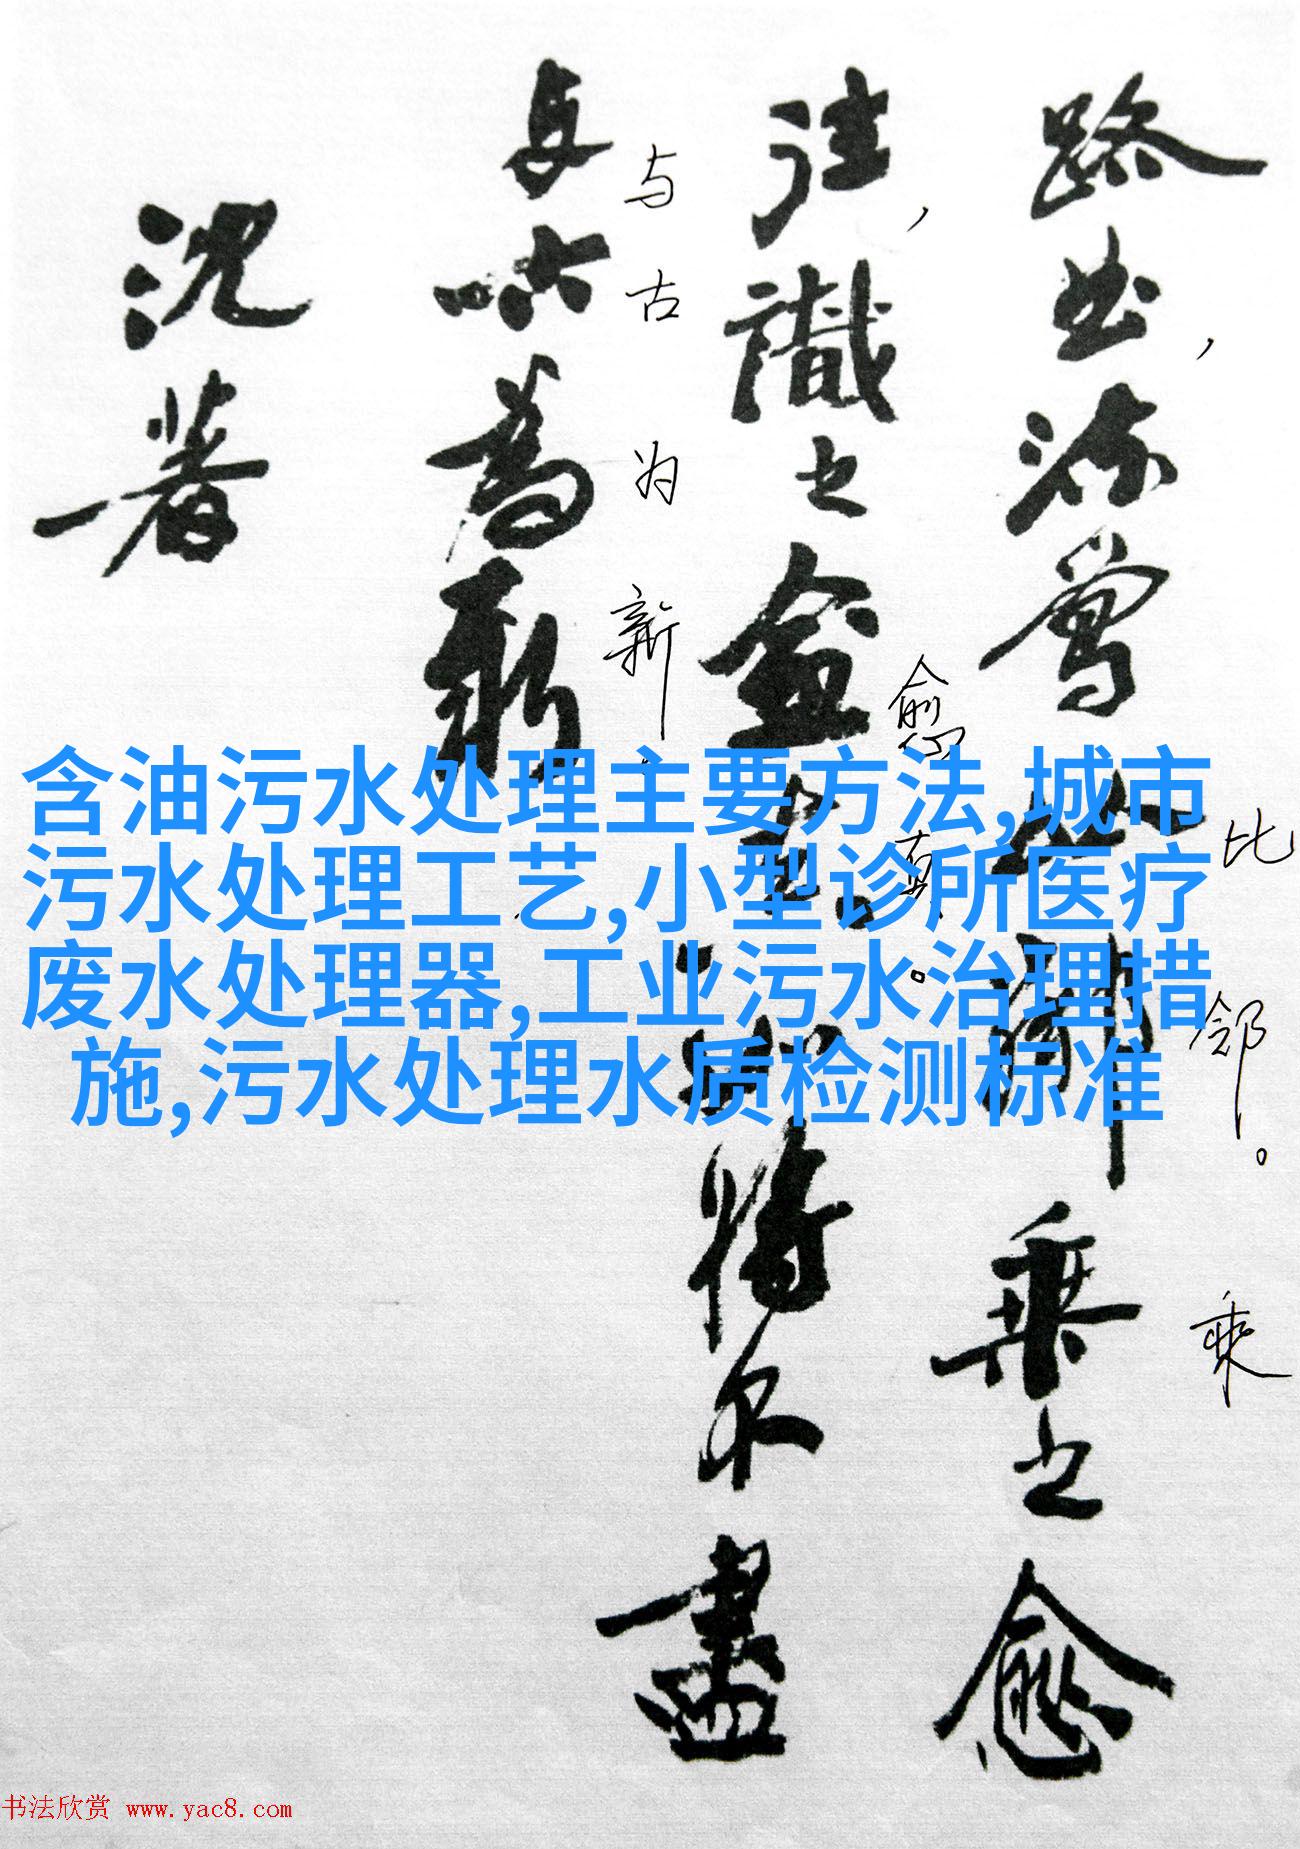 路曲，流鶯比鄰乘之愈
比邻。乘
往，識之愈真。如將不盡
愈真。
与古為新
与古为新
沈著
含油污水处理主要方法,城市
污水处理工艺,小型诊所医疗
废水处理器,工业污水治理措
施,污水处理水质检测标准
书法欣赏 www.yac8.com